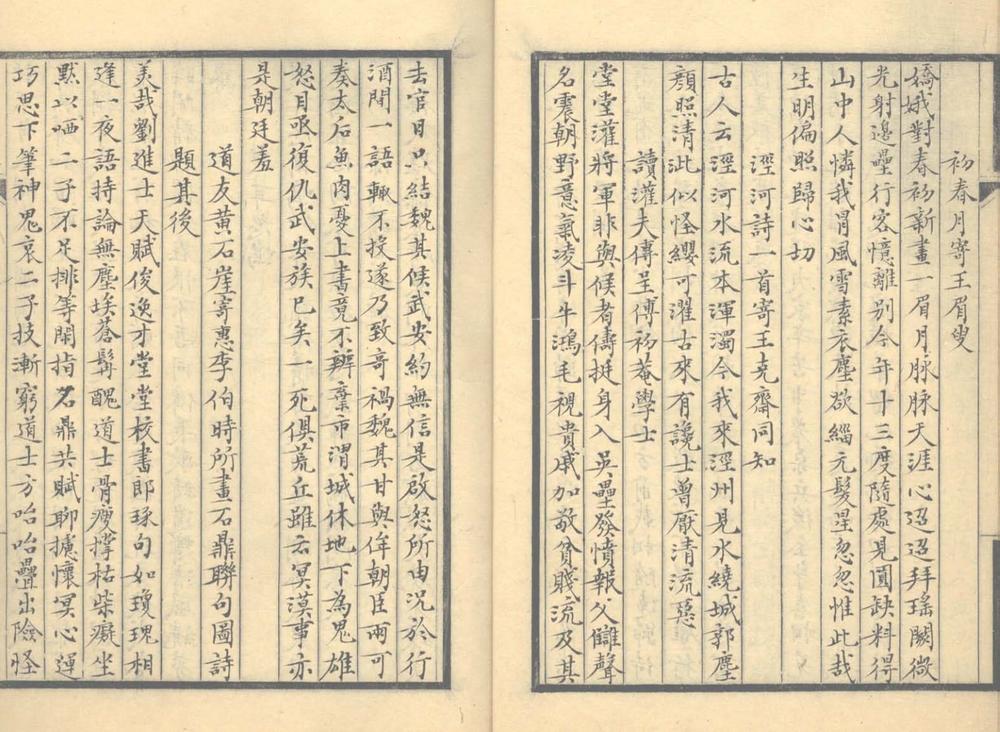 初春月寄王眉叟
嬌娥對春初新畫一眉月脉脉天涯心迢迢拜瑤闕微
光射邊壘行客憶離別今年十三度隨處見圓缺料得
山中人憐我冒風雪素衣塵欲緇元髮星忽忽惟此哉
生明偏照歸心切
涇河詩一首寄王克齋同知
古人云涇河水流本渾濁今我來涇州見水繞城郭塵
顏照清泚似怪纓可濯古來有讒士曾厭清流惡
讀灌夫傳呈傅初菴學士
堂堂灌將軍非與候者儔挺身入吳壘發憤報父讎聲
名震朝野意氣凌斗牛鴻毛視貴戚加敬貧賤流及其
去官日只結魏其候武安約無信是啟怒所由況於行
酒間一語輙不投遂乃致奇禍魏其甘與侔朝臣兩可
奏太后魚肉憂上書竟不辨棄市渭城休地下為鬼雄
怒目亟復仇武安族已矣一死俱荒丘雖云冥漠事亦
是朝廷羞
道友黃石崖寄惠李伯時所畫石鼎聯句圖詩
題其後
美哉劉進士天賦俊逸才堂堂校書郎琢句如瓊瑰相
逢一夜語持論無塵埃蒼髯醜道士骨瘦撑枯柴癡坐
默以哂二子不足排等閒指名鼎共賦聊攄懷冥心運
巧思下筆神鬼哀二子技漸窮道士方咍咍疊出險怪